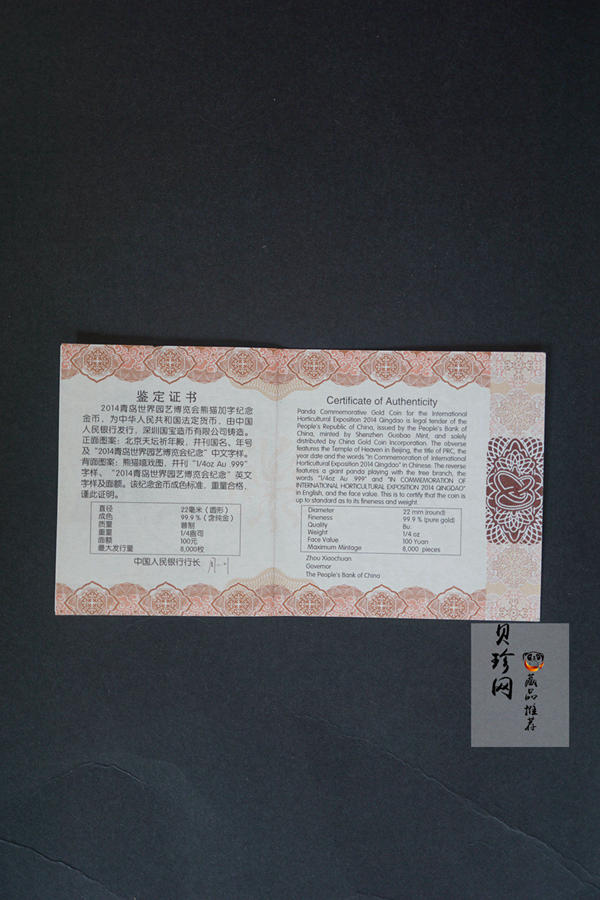 鉴定证书
2014青岛世界园艺博览会熊猫加字纪念
金币，为中华人民共和国法定货币，由中国
人民银行发行，深圳国宝造币有限公司铸造。
正面图案：北京天坛祈年殿，并刊国名、年号
及“2014青岛世界园艺博览会纪念”中文字样。
背面图案：熊猫嬉戏图，并刊“1/4oz Au .999”
字样、“2014青岛世界园艺博览会纪念”英文
字样及面额。该纪念金币成色标准，重量合格，
谨此证明。
直径 22毫米（圆形）
成色 99.9％（含纯金）
质量 普制
重量 1/4盎司
面额 100元
最大发行量 8,000枚
中国人民银行行长
Certificate of Authenticity
Panda Commemorative Gold Coin for the International
Horticultural Exposition 2014 Qingdao is legal tender of the
People's Republic of China, issued by the People's Bank of
China, minted by Shenzhen Guobao Mint, and solely
distributed by China Gold Coin Incorporation. The obverse
features the Temple of Heaven in Beijing, the title of PRC, the
year date and the words "In Commemoration of International
Horticultural Exposition 2014 Qingdao" in Chinese. The reverse
features a giant panda playing with the tree branch, the
words "1/4oz Au .999" and "IN COMMEMORATION OF
INTERNATIONAL HORTICULTURAL EXPOSITION 2014 QINGDAO"
in English, and the face value. This is to certify that the coin is
up to standard as to its fineness and weight.
Diameter 22 mm (round)
Fineness 99.9 % (pure gold)
Quality Bu.
Weight 1/4 oz
Face Value 100 Yuan
Maximum Mintage 8,000 pieces
Zhou Xiaochuan
Governor
The People's Bank of China
贝珍网
藏品推荐